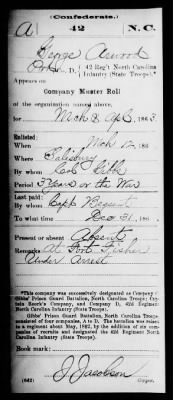 (Confederate.)
A 42 N.C.
George Arwood
Pvt, Co. D, 42 Reg't North Carolina
Infantry (State Troops).*
Appears on
Company Muster Roll
of the organization named above,
for Mch & Apl, 1863
Enlisted:
When Mch 12, 186
Where Salisbury
By whom Col Gibbs
Period 3 Years or the War
Last paid:
By whom Capt
To what time Dec 31, 186
Present or absent Absent
Remarks At Fort Fisher
Under Arrest
*This company was successively designated as Company
Gibbs' Prison Guard Battalion, North Carolina Troops; Captain
Company, and Company D, 42d Regiment
North Carolina Infantry (State Troops).
Gibbs' Prison Guard Battalion, North Carolina Troops,
consisted of four companies, A to D. The battalion was raised
to a regiment about May, 1862, by the addition of six companies
of recruits and designated the 42d Regiment
North Carolina Infantry (State Troops).
Book mark:
J. Jacobson
(642) Copyist.